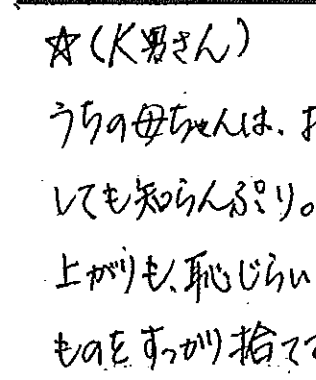 ☆(K男さん)
うちの母ちゃんは、お
しても知らんぷり。
上がりも、恥じらい
ものをすっかり捨てて